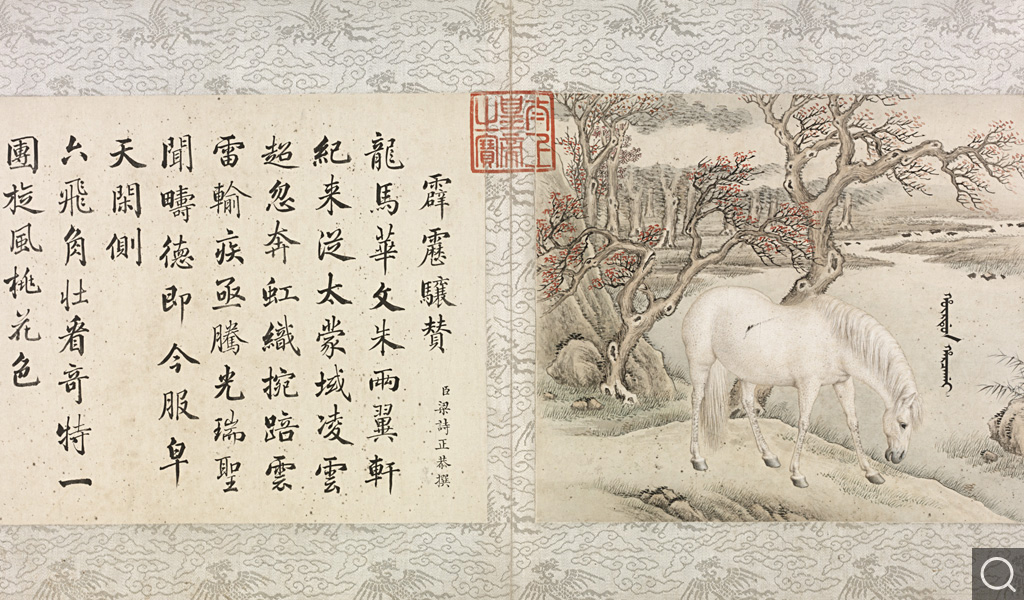 太上
皇帝
之寶
霹靂驤賛
臣梁詩正恭撰
龍馬華文朱兩翼軒
紀来從太蒙域凌雲
超忽奔虹織捥踣雲
雷輸疾亟騰光瑞聖
聞疇德即今服皁
天閑側
六飛角壮看奇特一
團旋風桃花色